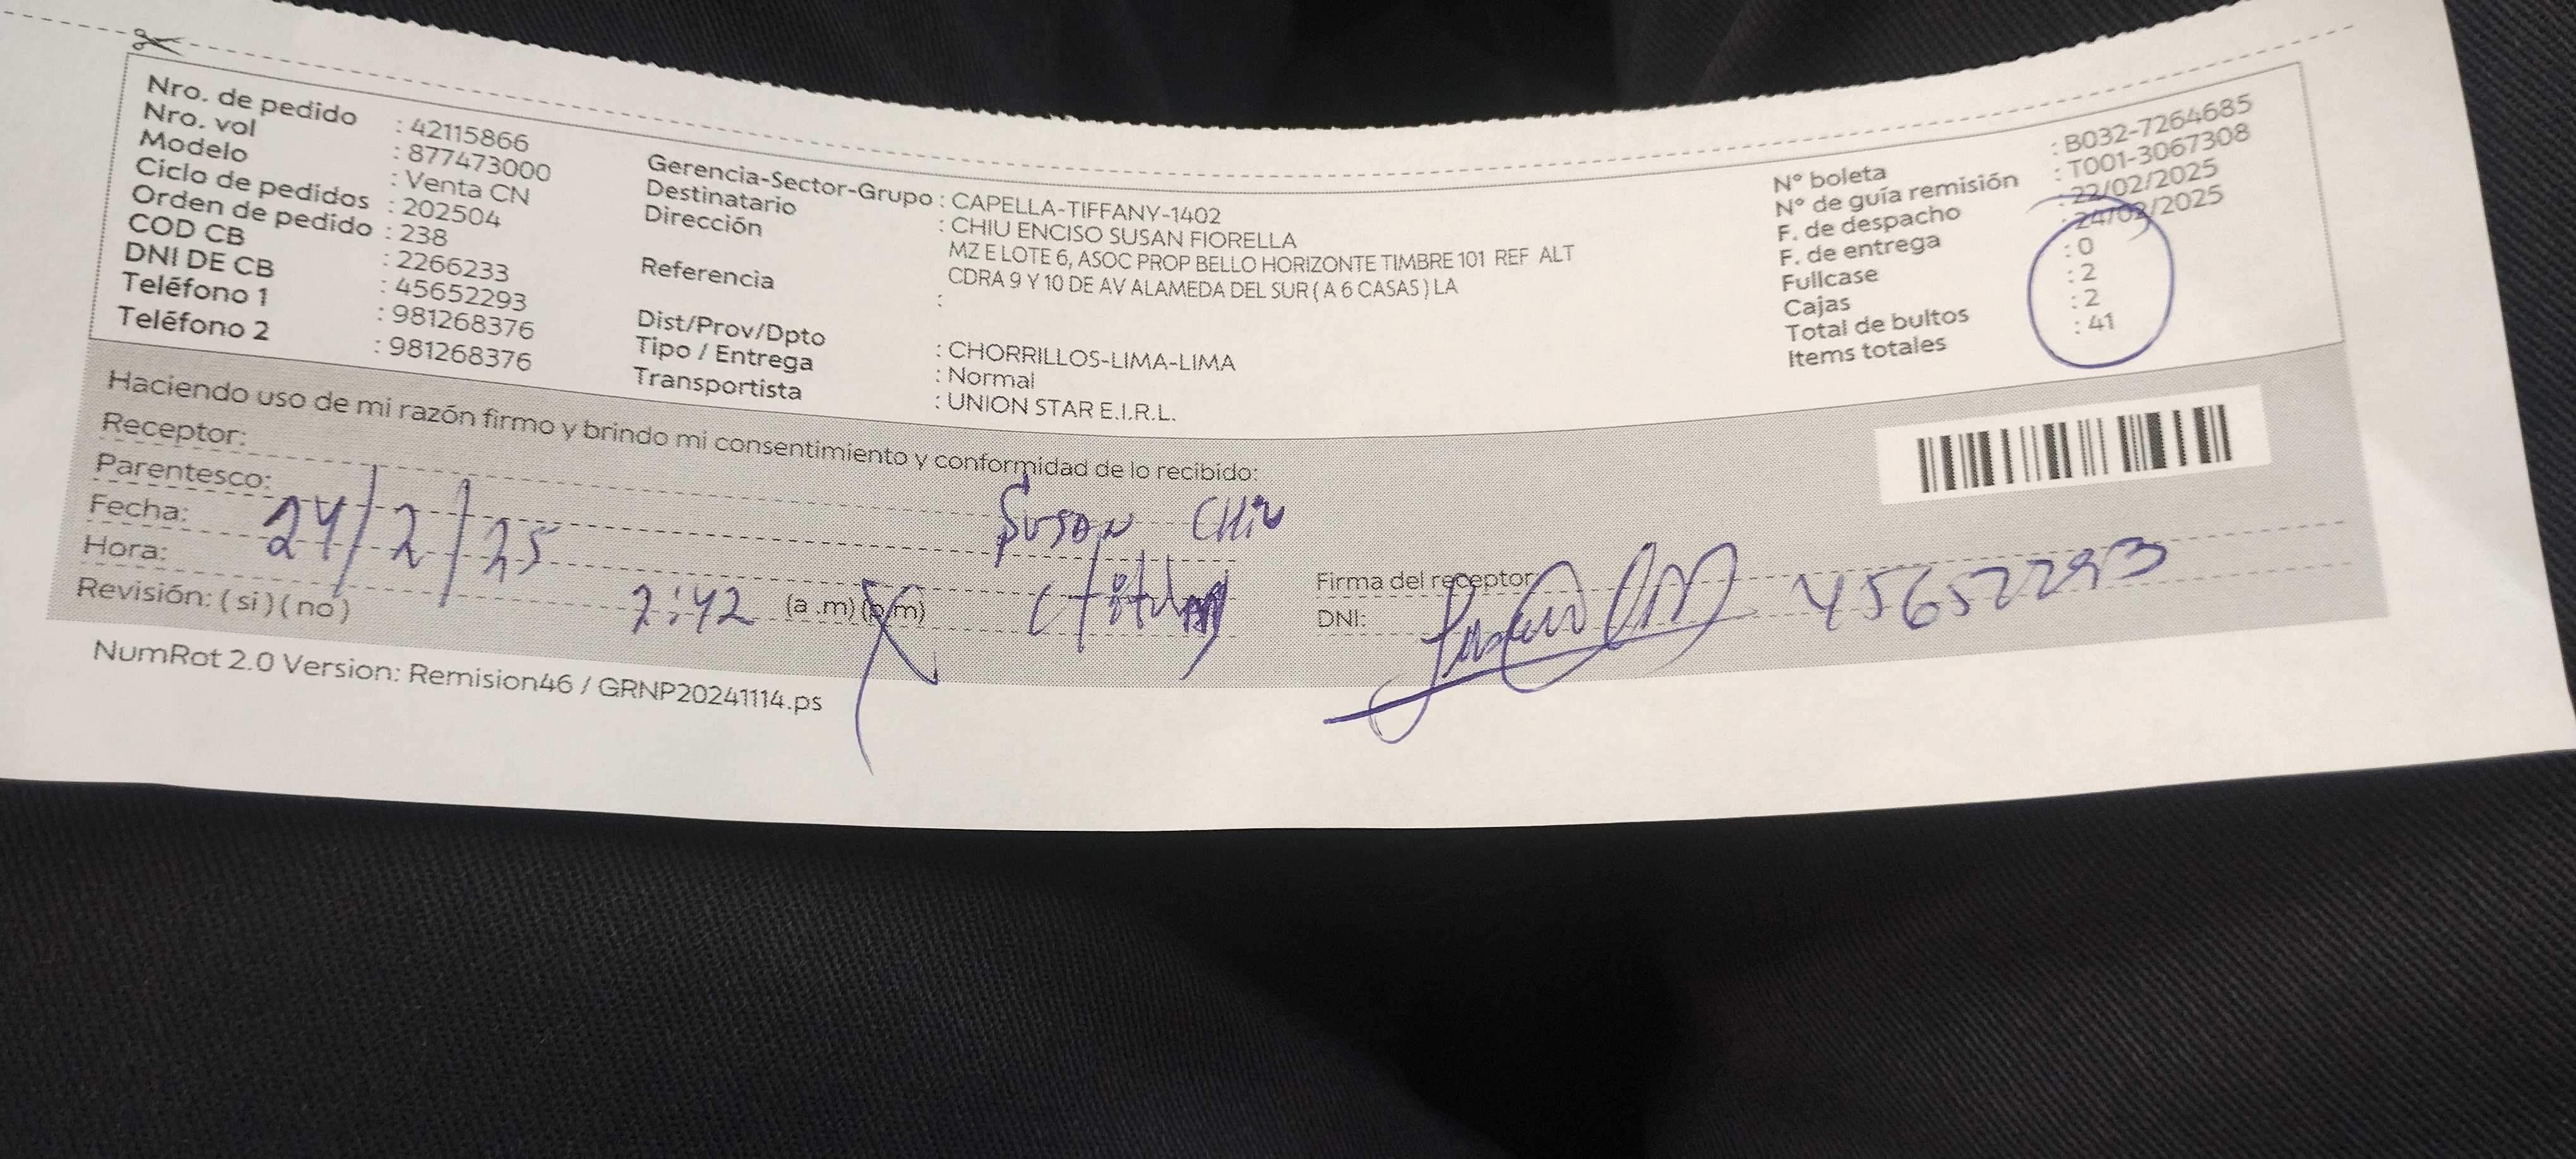 Nro. de pedido : 42115866
Nro. vol : 877473000
Modelo : Venta CN
Ciclo de pedidos : 202504
Orden de pedido : 238
COD CB : 2266233
DNI DE CB : 45652293
Teléfono 1 : 981268376
Teléfono 2 : 981268376
Gerencia-Sector-Grupo : CAPELLA-TIFFANY-1402
Destinatario : CHIU ENCISO SUSAN FIORELLA
Dirección MZ E LOTE 6, ASOC PROP BELLO HORIZONTE TIMBRE 101 REF ALT
CDRA 9 Y 10 DE AV ALAMEDA DEL SUR ( A 6 CASAS ) LA
Referencia :
Dist/Prov/Dpto : CHORRILLOS-LIMA-LIMA
Tipo / Entrega : Normal
Transportista : UNION STAR E.I.R.L.
N° boleta : B032-7264685
N° de guía remisión : T001-3067308
F. de despacho : 22/02/2025
F. de entrega : 24/02/2025
Fullcase : 0
Cajas : 2
Total de bultos : 2
Items totales : 41
Haciendo uso de mi razón firmo y brindo mi consentimiento y conformidad de lo recibido:
Receptor: Susan Chiu
Parentesco:
Fecha: 24/2/25
Hora: 7:42 (a .m) (p.m)
Revisión: ( si ) ( no )
Firma del receptor
DNI: 45652293
NumRot 2.0 Version: Remision46 / GRNP20241114.ps